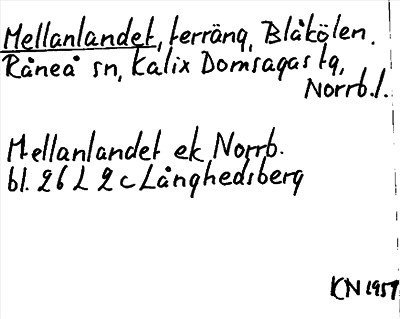 Mellanlandet, terräng, Blåkölen.
Råneå sn, Kalix Domsagas tg,
Norrb. l.
Mellanlandet ek Norrb.
bl. 26 L 2 c Långhedsberg
KN 1957